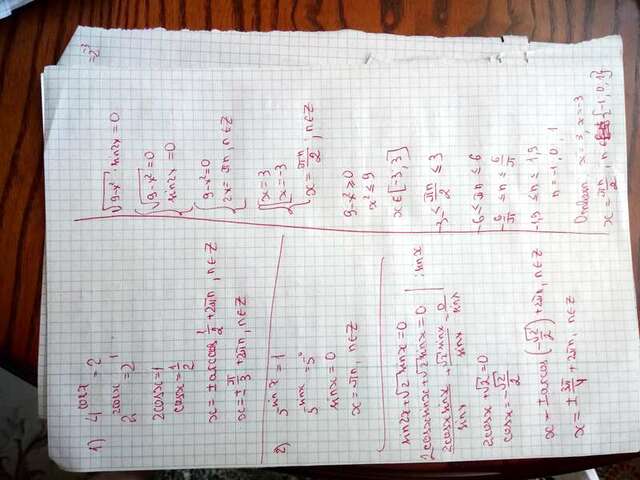 1) 4^cosx = 2
2^2cosx = 2^1
2cosx = 1
cosx = 1/2
x = ± arccos 1/2 + 2πn, n∈Z
x = ± π/3 + 2πn, n∈Z
2) 5^sinx = 1
5^sinx = 5°
sinx = 0
x = πn, n∈Z
sin2x + √2 sinx = 0
2cosx sinx + √2 sinx = 0 | : sinx
2cosx sinx/sinx + √2 sinx/sinx = 0/sinx
2cosx + √2 = 0
cosx = -√2/2
x = ± arccos (-√2/2) + 2πn, n∈Z
x = ± 3π/4 + 2πn, n∈Z
√9-x² · sin2x = 0
√9-x² = 0
sin2x = 0
9-x² = 0
2x = πn, n∈Z
x = 3
x = -3
x = πn/2, n∈Z
9-x² ≥ 0
x² ≤ 9
x∈[-3; 3]
-3 ≤ πn/2 ≤ 3
-6 ≤ πn ≤ 6
-6/π ≤ n ≤ 6/π
-1,9 ≤ n ≤ 1,9
n = -1, 0, 1
x = 3, x = -3
x = πn/2, n∈{-1, 0, 1}
=2^-3